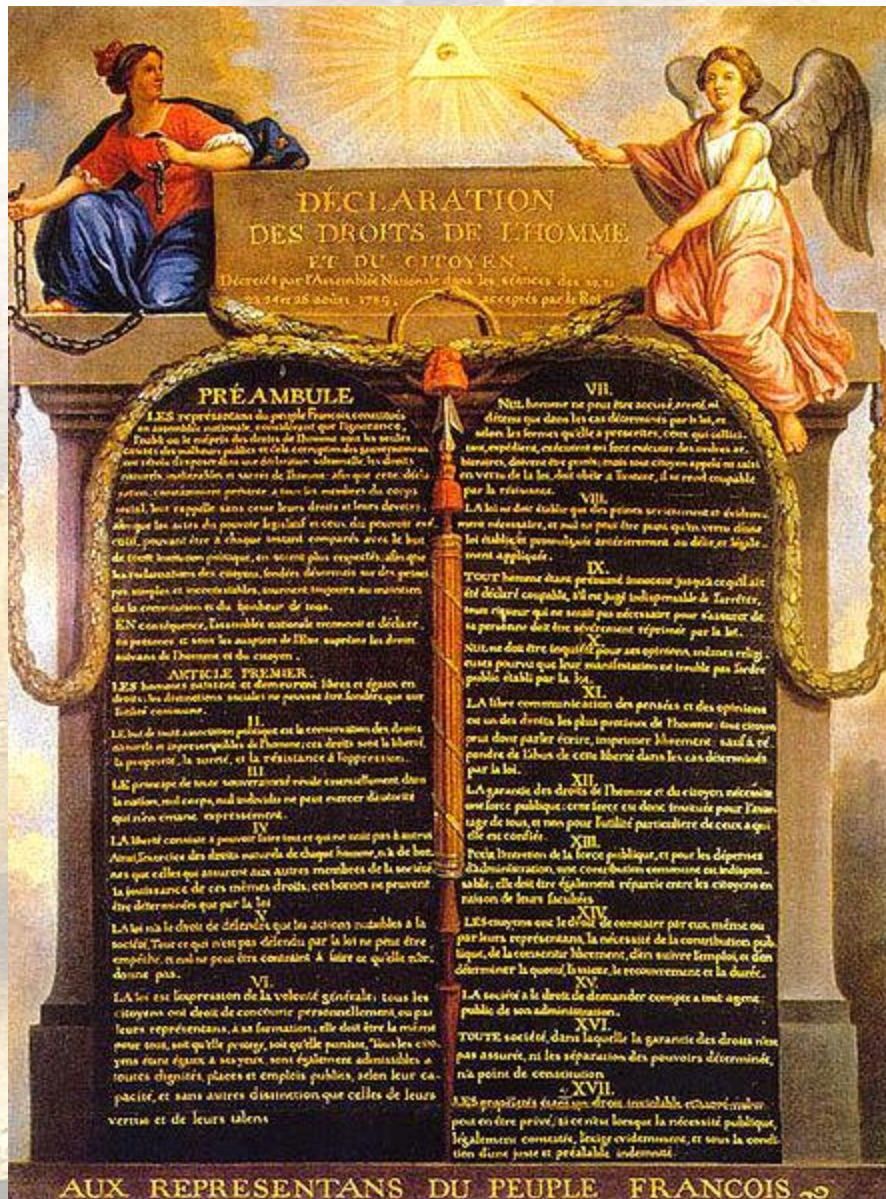 DÉCLARATION
DES DROITS DE L'HOMME
ET DU CITOYEN
Décretés par l'Assemblée Nationale dans les séances des 20, 21
23, 24 et 26 août 1789, acceptés par le Roi
PRÉAMBULE
LES représentans du peuple François, constitués
en assemblée nationale, considérant que l'ignorance,
l'oubli ou le mépris des droits de l'homme sont les seules
causes des malheurs publics et de la corruption des gouvernemens
ont résolu d'exposer dans une déclaration solemnelle, les droits
naturels, inaliénables et sacrés de l'homme: afin que cette décla
ration, constamment présente à tous les membres du corps
social, leur rappelle sans cesse leurs droits et leurs devoirs;
afin que les actes du pouvoir législatif et ceux du pouvoir exé
cutif, pouvant être à chaque instant comparés avec le but
de toute institution politique, en soient plus respectés; afin que
les réclamations des citoyens, fondées désormais sur des princi
pes simples et incontestables, tournent toujours au maintien
de la constitution et du bonheur de tous.
EN conséquence, l'assemblée nationale reconnoit et déclare
en présence et sous les auspices de l'Etre suprême les droits
suivans de l'homme et du citoyen.
ARTICLE PREMIER.
LES hommes naissent et demeurent libres et égaux en
droits; les distinctions sociales ne peuvent être fondées que sur
l'utilité commune.
II.
LE but de toute association politique est la conservation des droits
naturels et imprescriptibles de l'homme; ces droits sont la liberté,
la propriété, la sureté, et la résistance à l'oppression.
III.
LE principe de toute souveraineté réside essentiellement dans
la nation, nul corps, nul individu ne peut exercer d'autorité
qui n'en émane expressément.
IV
LA liberté consiste à pouvoir faire tout ce qui ne nuit pas à autrui
Ainsi, l'exercice des droits naturels de chaque homme, n'a de bor-
nes que celles qui assurent aux autres membres de la société
la jouissance de ces mêmes droits; ces bornes ne peuvent
être déterminées que par la loi
V.
LA loi n'a le droit de défendre que les actions nuisibles à la
société, Tout ce qui n'est pas défendu par la loi ne peut être
empêché, et nul ne peut être contraint à faire ce qu'elle n'or-
donne pas.
VI.
LA loi est l'expression de la volonté générale; tous les
citoyens ont droit de concourir personnellement, ou par
leurs représentans, à sa formation; elle doit être la même
pour tous, soit qu'elle protege, soit qu'elle punisse, Tous les cito-
yens étant égaux à ses yeux, sont également admissibles à
toutes dignités, places et emplois publics, selon leur ca-
pacité, et sans autres distinction que celles de leurs
vertus et de leurs talens
VII.
NUL homme ne peut être accusé, arreté, ni
détenu que dans les cas déterminés par la loi, et
selon les formes qu'elle a prescrites, ceux qui sollici-
tent, expédient, exécutent ou font exécuter des ordres ar-
bitraires, doivent être punis; mais tout citoyen appelé ou saisi
en vertu de la loi, doit obéir à l'instant, il se rend coupable
par la résistance.
VIII.
LA loi ne doit établir que des peines strictement et évidem-
ment nécessaire, et nul ne peut être puni qu'en vertu d'une
loi établie, et promulguée antérieurement au délit, et légale-
ment appliquée.
IX.
TOUT homme étant présumé innocent jusqu'à ce qu'il ait
été déclaré coupable, s'il est jugé indispensable de l'arrêter,
toute rigueur qui ne serait pas nécessaire pour s'assurer de
sa personne doit être sévèrement réprimée par la loi.
X.
NUL ne doit être inquiété pour ses opinions, mêmes religi-
euses pourvu que leur manifestation ne trouble pas l'ordre
public établi par la loi.
XI.
LA libre communication des pensées et des opinions
est un des droits les plus précieux de l'homme; tout citoyen
peut donc parler écrire, imprimer librement; sauf à ré-
pondre de l'abus de cette liberté dans les cas déterminés
par la loi.
XII.
LA garantie des droits de l'homme et du citoyen nécessite
une force publique; cette force est donc instituée pour l'avan-
tage de tous, et non pour l'utilité particulière de ceux à qui
elle est confiée.
XIII.
Pour l'entretien de la force publique, et pour les dépenses
d'administration, une contribution commune est indispen-
sable; elle doit être également répartie entre les citoyens en
raison de leurs facultées
XIV.
LES citoyens ont le droit de constater par eux même ou
par leurs représentans, la nécessité de la contribution pub-
lique, de la consentir librement, d'en suivre l'emploi, et d'en
déterminer la quotité, l'assiete, le recouvrement et la durée.
XV.
LA société a le droit de demander compte a tout agent
public de son administration.
XVI.
TOUTE société, dans laquelle la garantie des droits n'est
pas assurée, ni les séparation des pouvoirs déterminée,
n'a point de constitution
XVII.
LES propriétés étant un droit inviolable et sacré, nul ne
peut en être privé, si ce n'est lorsque la nécessité publique,
légalement constatée, l'exige evidemment, et sous la condi-
tion d'une juste et préalable indemnité.
AUX REPRESENTANS DU PEUPLE FRANCOIS